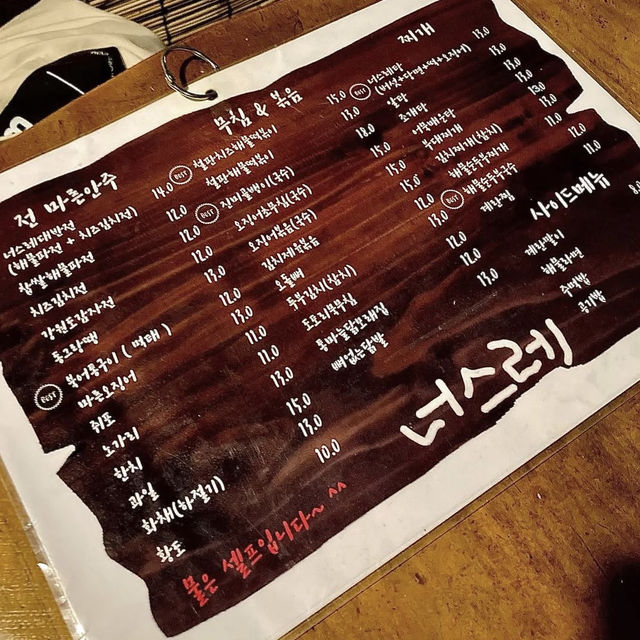 전 마른안주
너스레대방전
(해물파전 + 치즈김치전) 14.0
찹쌀해물파전 12.0
치즈김치전 12.0
강원도감자전 13.0
동그랑땡 12.0
BEST 북어롱구이 ( 먹태 ) 12.0
마른오징어 13.0
쥐포 11.0
노가리 11.0
한치 13.0
과일 15.0
화채(하절기) 13.0
황도 10.0
물은 셀프입니다~ ^^
무침 & 볶음
BEST 설파치즈해물떡볶이 15.0
설파해물떡볶이 13.0
BEST 골미골뱅이(국수) 13.0
오징어초무침(국수) 15.0
오징어볶음(국수) 15.0
김치제육볶음
오돌뼈
두부김치(참치) 12.0
도토리묵무침 12.0
통마늘닭모래집 12.0
뼈없는닭발 13.0
찌개
BEST 너스레탕 15.0
알탕 13.0
조개탕 13.0
어묵매운탕 13.0
부대찌개 13.0
김치찌개(참치) 12.0
해물순두부찌개 12.0
BEST 해물순두부국수 13.0
사이드메뉴
계란찜
계란말이 12.0
해물라면
주먹밥
공기밥
너스레